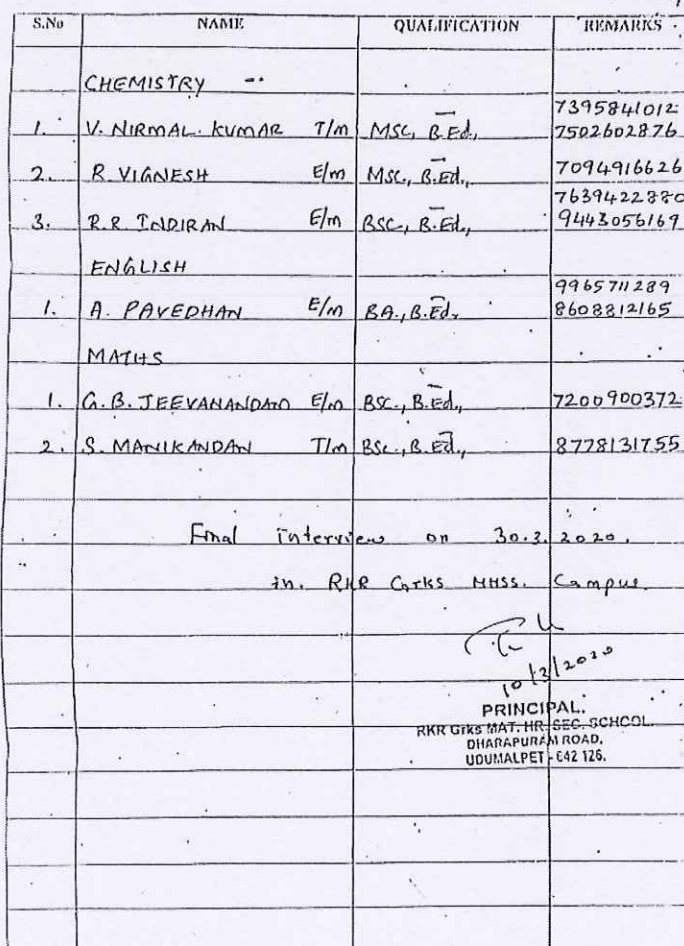 S.No NAME QUALIFICATION REMARKS
CHEMISTRY
7395841012
1. V. NIRMAL. KUMAR T/m MSC, B.Ed., 7502602876
2. R VIGNESH E/m MSC., B.Ed., 7094916626
7639422880
3. R.R. INDIRAN E/m BSC., B.Ed., 9443056169
ENGLISH
9965711289
1. A. PAVEDHAN E/m BA., B.Ed. 8608812165
MATHS
1. G.B. JEEVANANDAM E/m BSC., B.Ed., 7200900372
2. S. MANIKANDAN T/m BSc., B.Ed., 8778131755
Final interview on 30.3.2020.
in. RKR GRKS MHSS. Campus.
10/3/2020
PRINCIPAL.
RKR GRKS MAT. HR. SEC. SCHOOL.
DHARAPURAM ROAD,
UDUMALPET - 642 126.